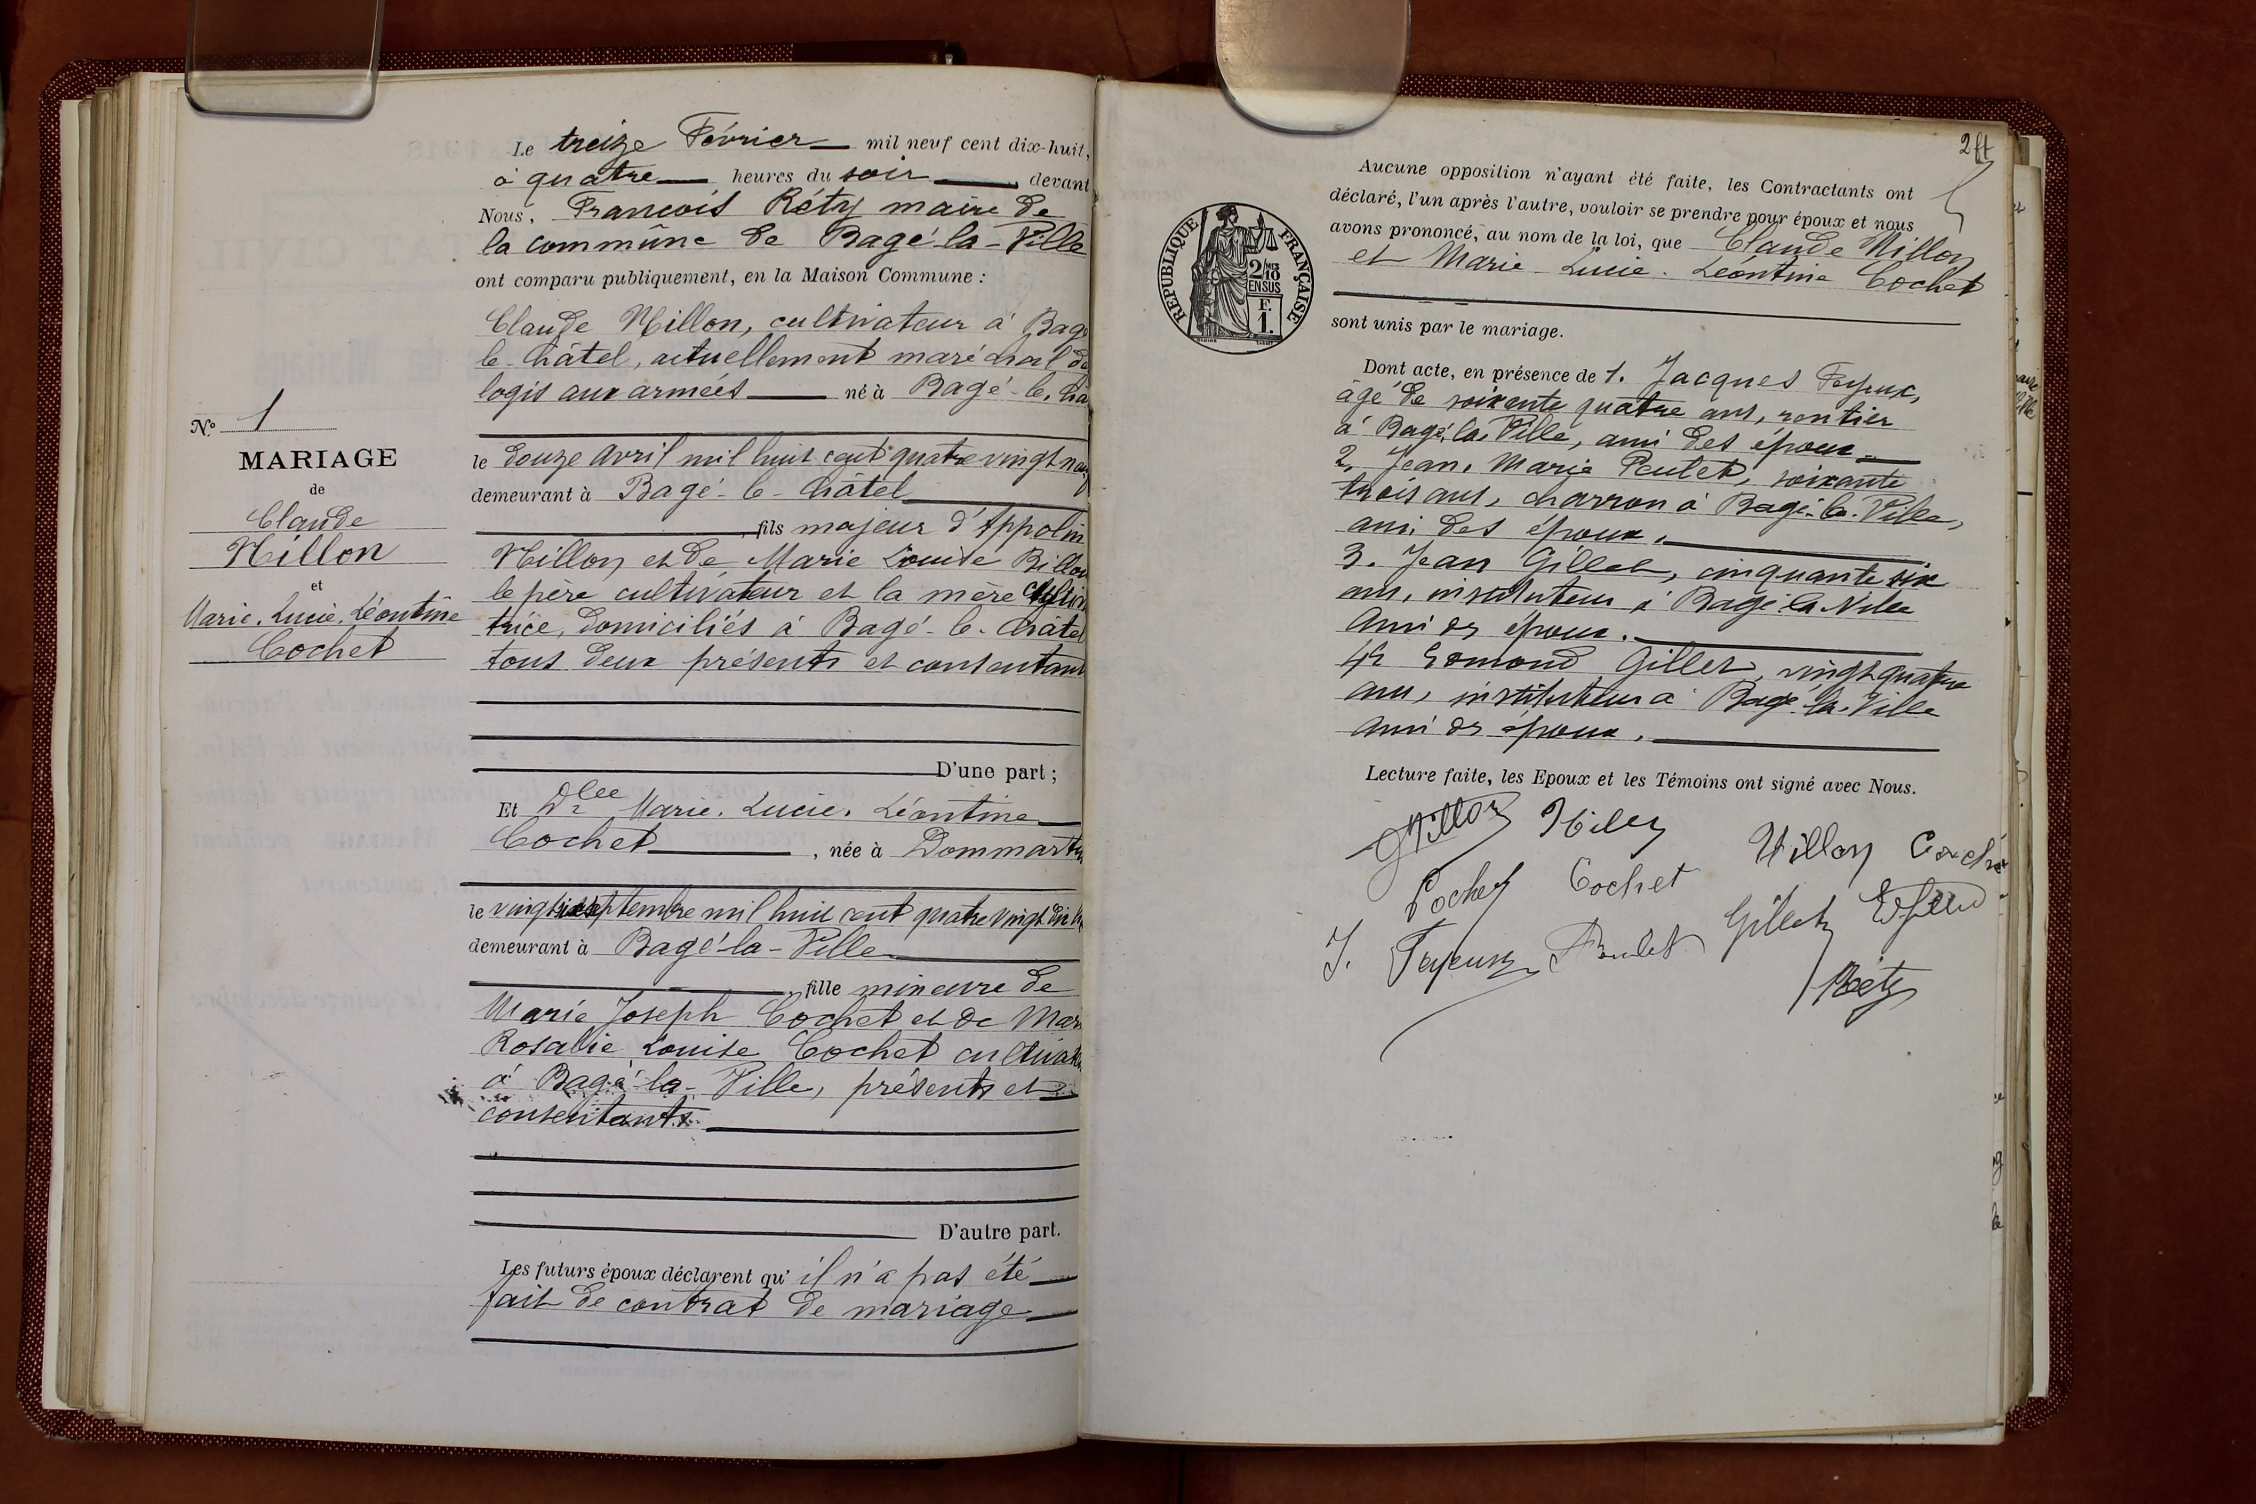 Le treize Février mil neuf cent dix-huit,
à quatre heures du soir, devant
Nous, François Réty maire de
la commûne de Bagé-la-Ville
ont comparu publiquement, en la Maison Commune :
Claude Nillon, cultivateur à Bagé
le-Châtel, actuellement maréchal de
logis aux armées né à Bagé-le-Châ
le douze avril mil huit cent quatre vingt neuf
demeurant à Bagé-le-Châtel
, fils majeur d'Appolin
Nillon et de Marie Louise Billon
le père cultivateur et la mère cultiva
trice, domiciliés à Bagé-le-Châtel
tous deux présents et consentants
D'une part ;
Et Dlle Marie, Lucie, Léontine
Cochet, née à Dommartin
le vingt septembre mil huit cent quatre vingt dix
demeurant à Bagé-la-Ville
, fille mineure de
Marie Joseph Cochet et de Marie
Rosalie Louise Cochet cultivate
à Bagé-la-Ville, présents et
consentants
D'autre part.
Les futurs époux déclarent qu'il n'a pas été
fait de contrat de mariage
N° 1
MARIAGE
de
Claude
Nillon
et
Marie, Lucie, Léontine
Cochet
2
Aucune opposition n'ayant été faite, les Contractants ont
déclaré, l'un après l'autre, vouloir se prendre pour époux et nous
avons prononcé, au nom de la loi, que Claude Nillon
et Marie-Lucie-Léontine Cochet
sont unis par le mariage.
RÉPUBLIQUE FRANÇAISE
2/10
EN SUS
F.
1.
Dont acte, en présence de 1. Jacques Feyeux,
âgé de soixante quatre ans, rentier
à Bagé-la-Ville, ami des époux
2, Jean, Marie Poulet, soixante
trois ans, charron à Bagé-la-Ville,
ami des époux,
3. Jean Gillet, cinquante six
ans, instituteur à Bagé-la-Ville
ami des époux.
4° Edmond Gillet, vingt quatre
ans, instituteur à Bagé-la-Ville
ami des époux,
Lecture faite, les Epoux et les Témoins ont signé avec Nous.
Nillon Nillon Cochet
Cochet Cochet Gillet
J. Feyeux Poulet
Réty